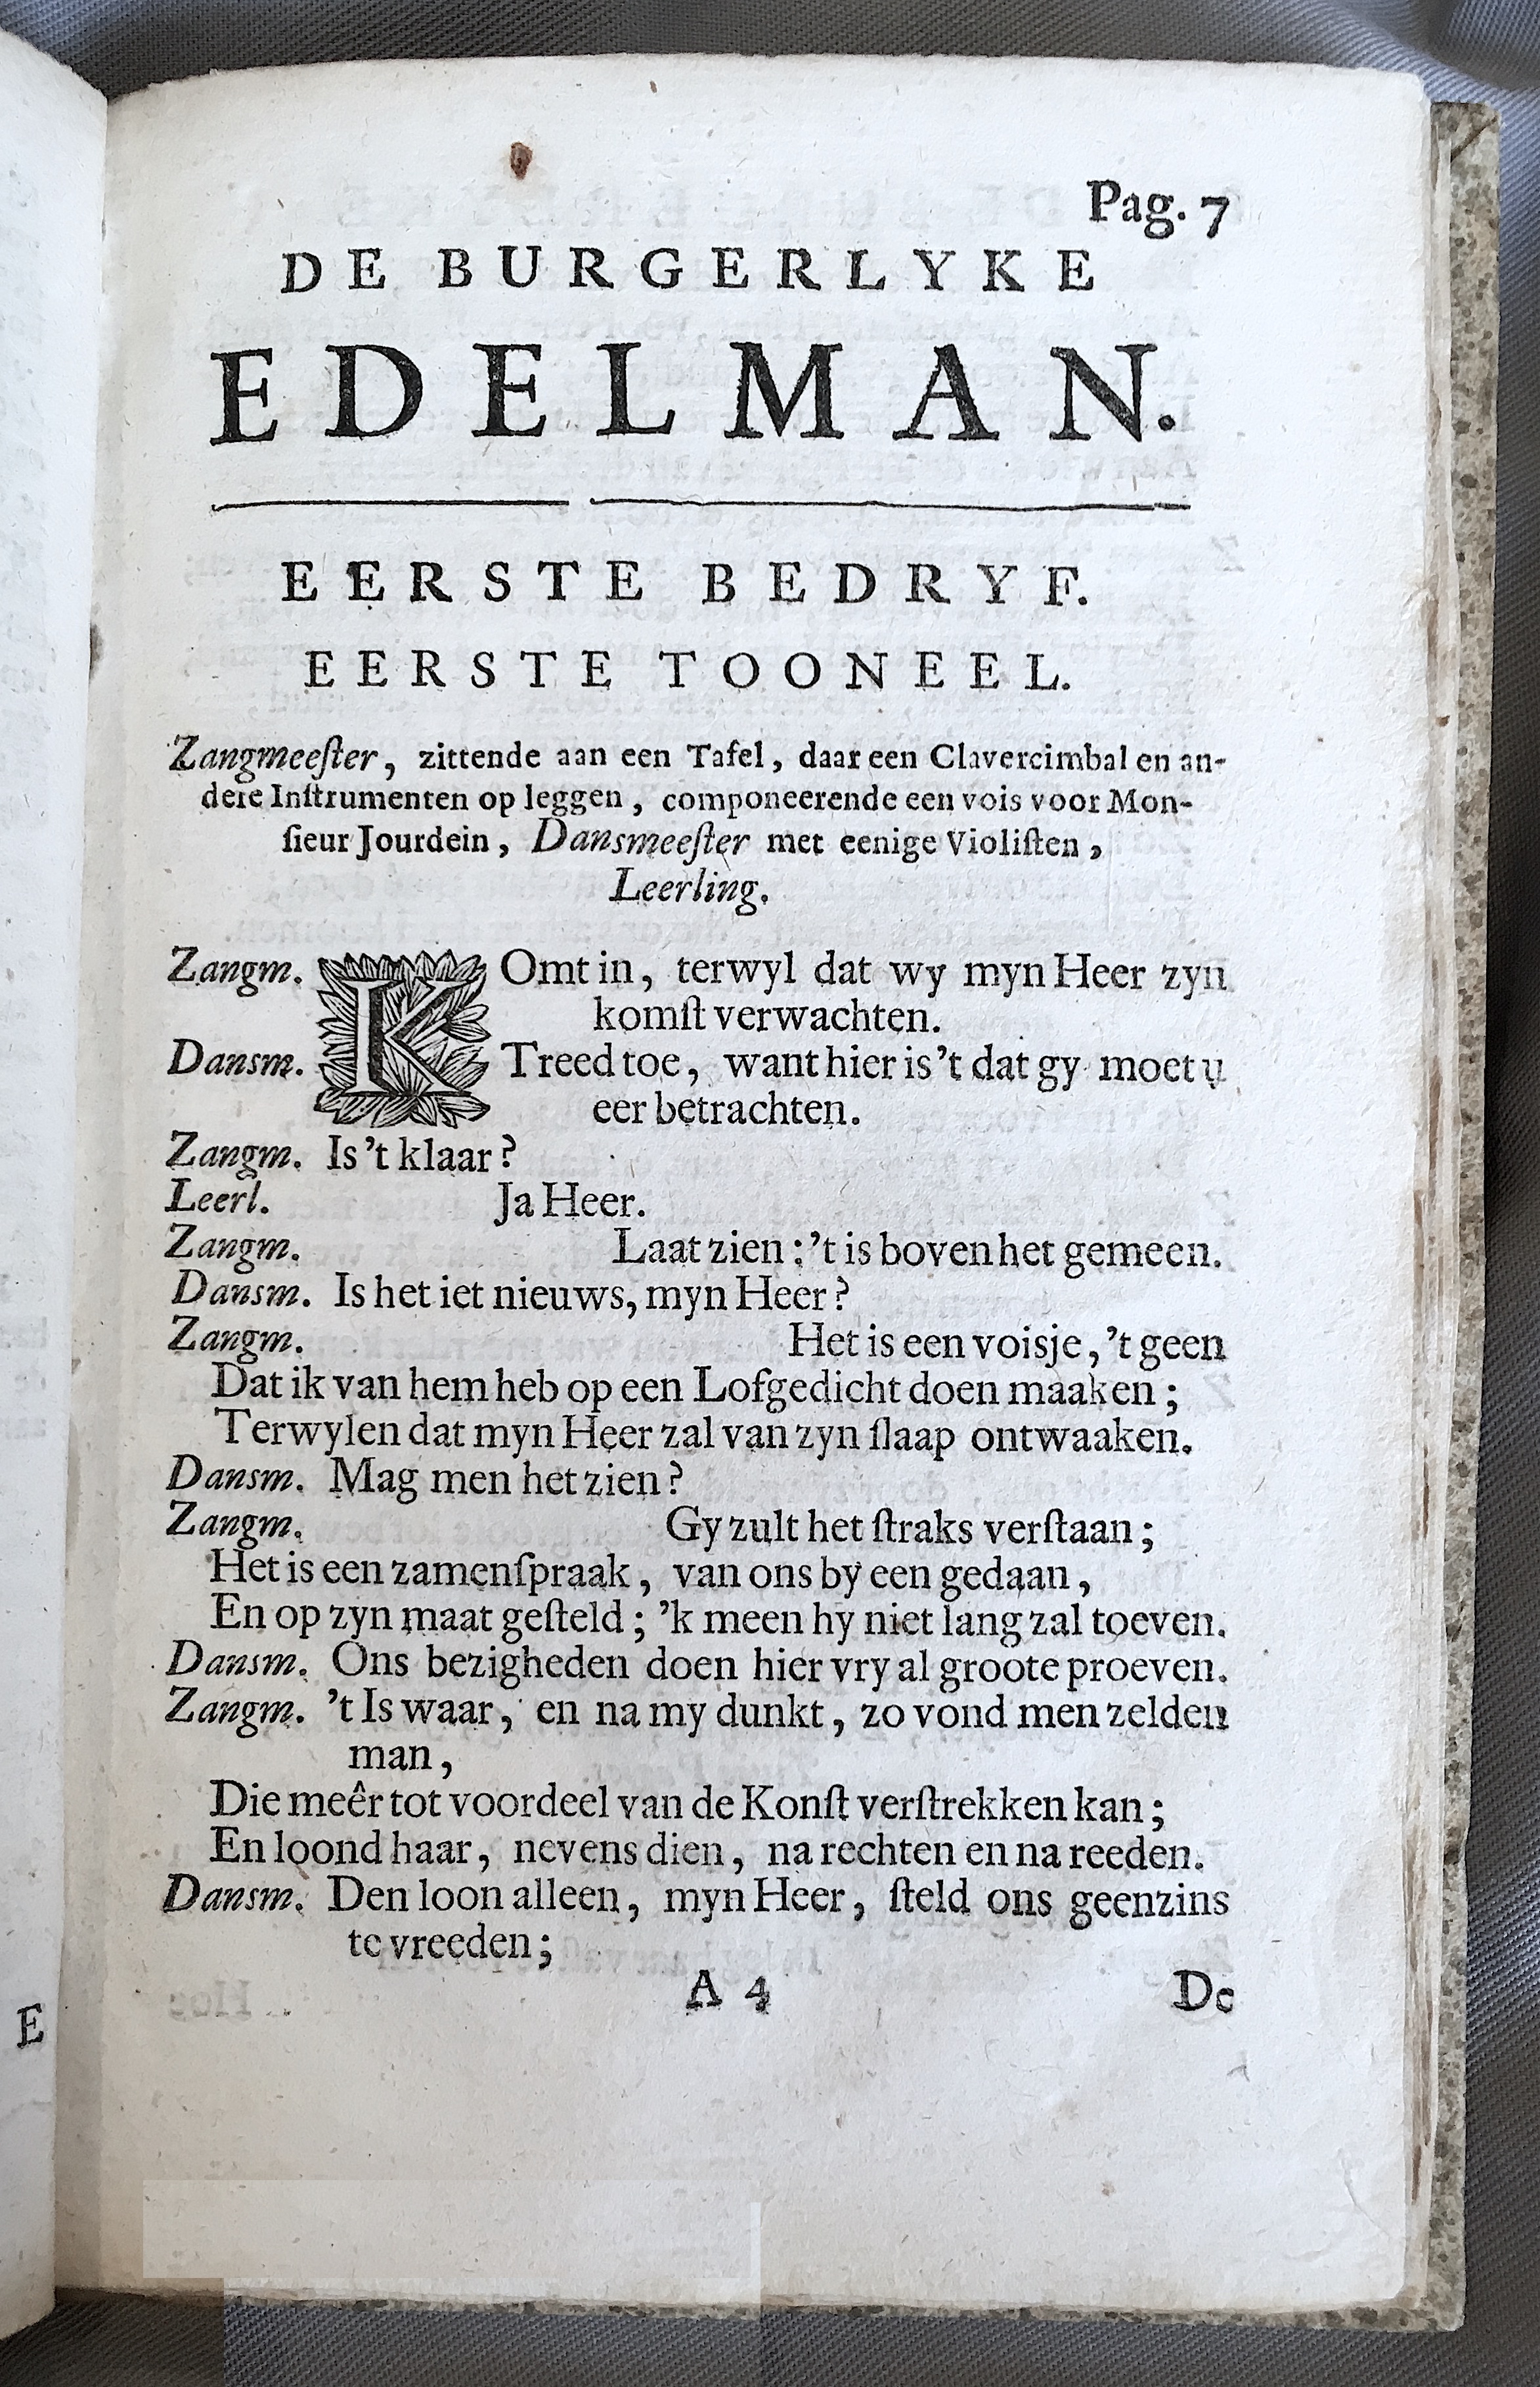 Pag. 7
DE BURGERLYKE
EDELMAN.
EERSTE BEDRYF.
EERSTE TOONEEL.
Zangmeeſter, zittende aan een Tafel, daar een Clavercimbal en an-
dere Inſtrumenten op leggen, componeerende een vois voor Mon-
ſieur Jourdein, Dansmeeſter met eenige Violiſten,
Leerling.
Zangm. KOmt in, terwyl dat wy myn Heer zyn
komſt verwachten.
Dansm. Treed toe, want hier is 't dat gy moet u
eer betrachten.
Zangm. Is 't klaar?
Leerl. Ja Heer.
Zangm. Laat zien: 't is boven het gemeen.
Dansm. Is het iet nieuws, myn Heer?
Zangm. Het is een voisje, 't geen
Dat ik van hem heb op een Lofgedicht doen maaken;
Terwylen dat myn Heer zal van zyn ſlaap ontwaaken.
Dansm. Mag men het zien?
Zangm. Gy zult het ſtraks verſtaan;
Het is een zamenſpraak, van ons by een gedaan,
En op zyn maat geſteld; 'k meen hy niet lang zal toeven.
Dansm. Ons bezigheden doen hier vry al groote proeven.
Zangm. 't Is waar, en na my dunkt, zo vond men zelden
man,
Die meêr tot voordeel van de Konſt verſtrekken kan;
En loond haar, nevens dien, na rechten en na reeden.
Dansm. Den loon alleen, myn Heer, ſteld ons geenzins
te vreeden;
A 4 De
E